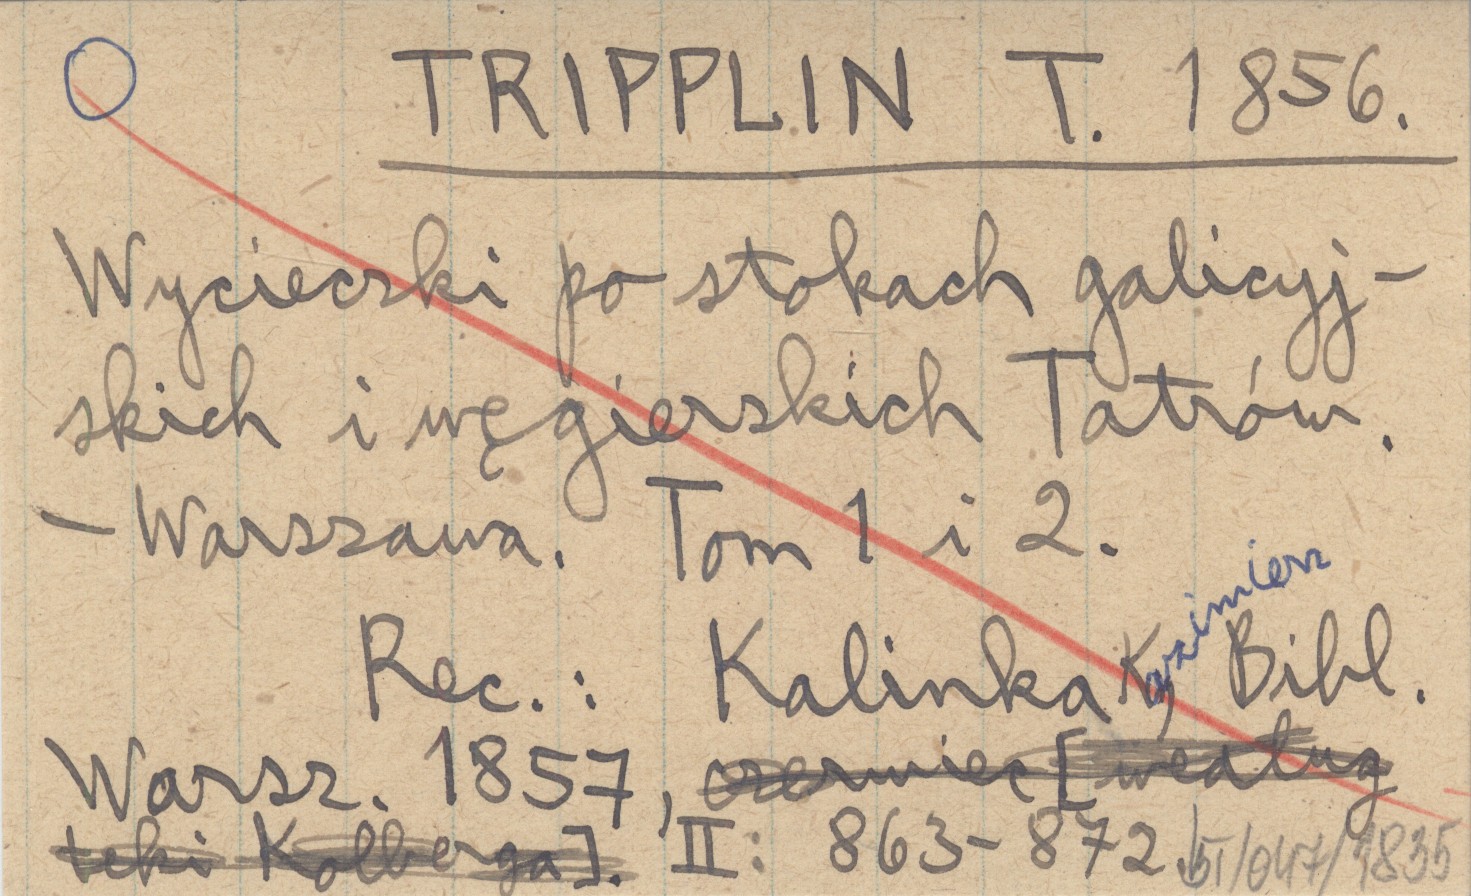 TRIPPLIN T. 1856.
Wycieczki po stokach galicyj-
skich i węgierskich Tatrów.
- Warszawa. Tom 1 i 2.
Rec.: Kalinka Kazimierz, Bibl.
Warsz. 1857, czerwiec [według
teki Kolberga]. II: 863-872.
51/047/1835